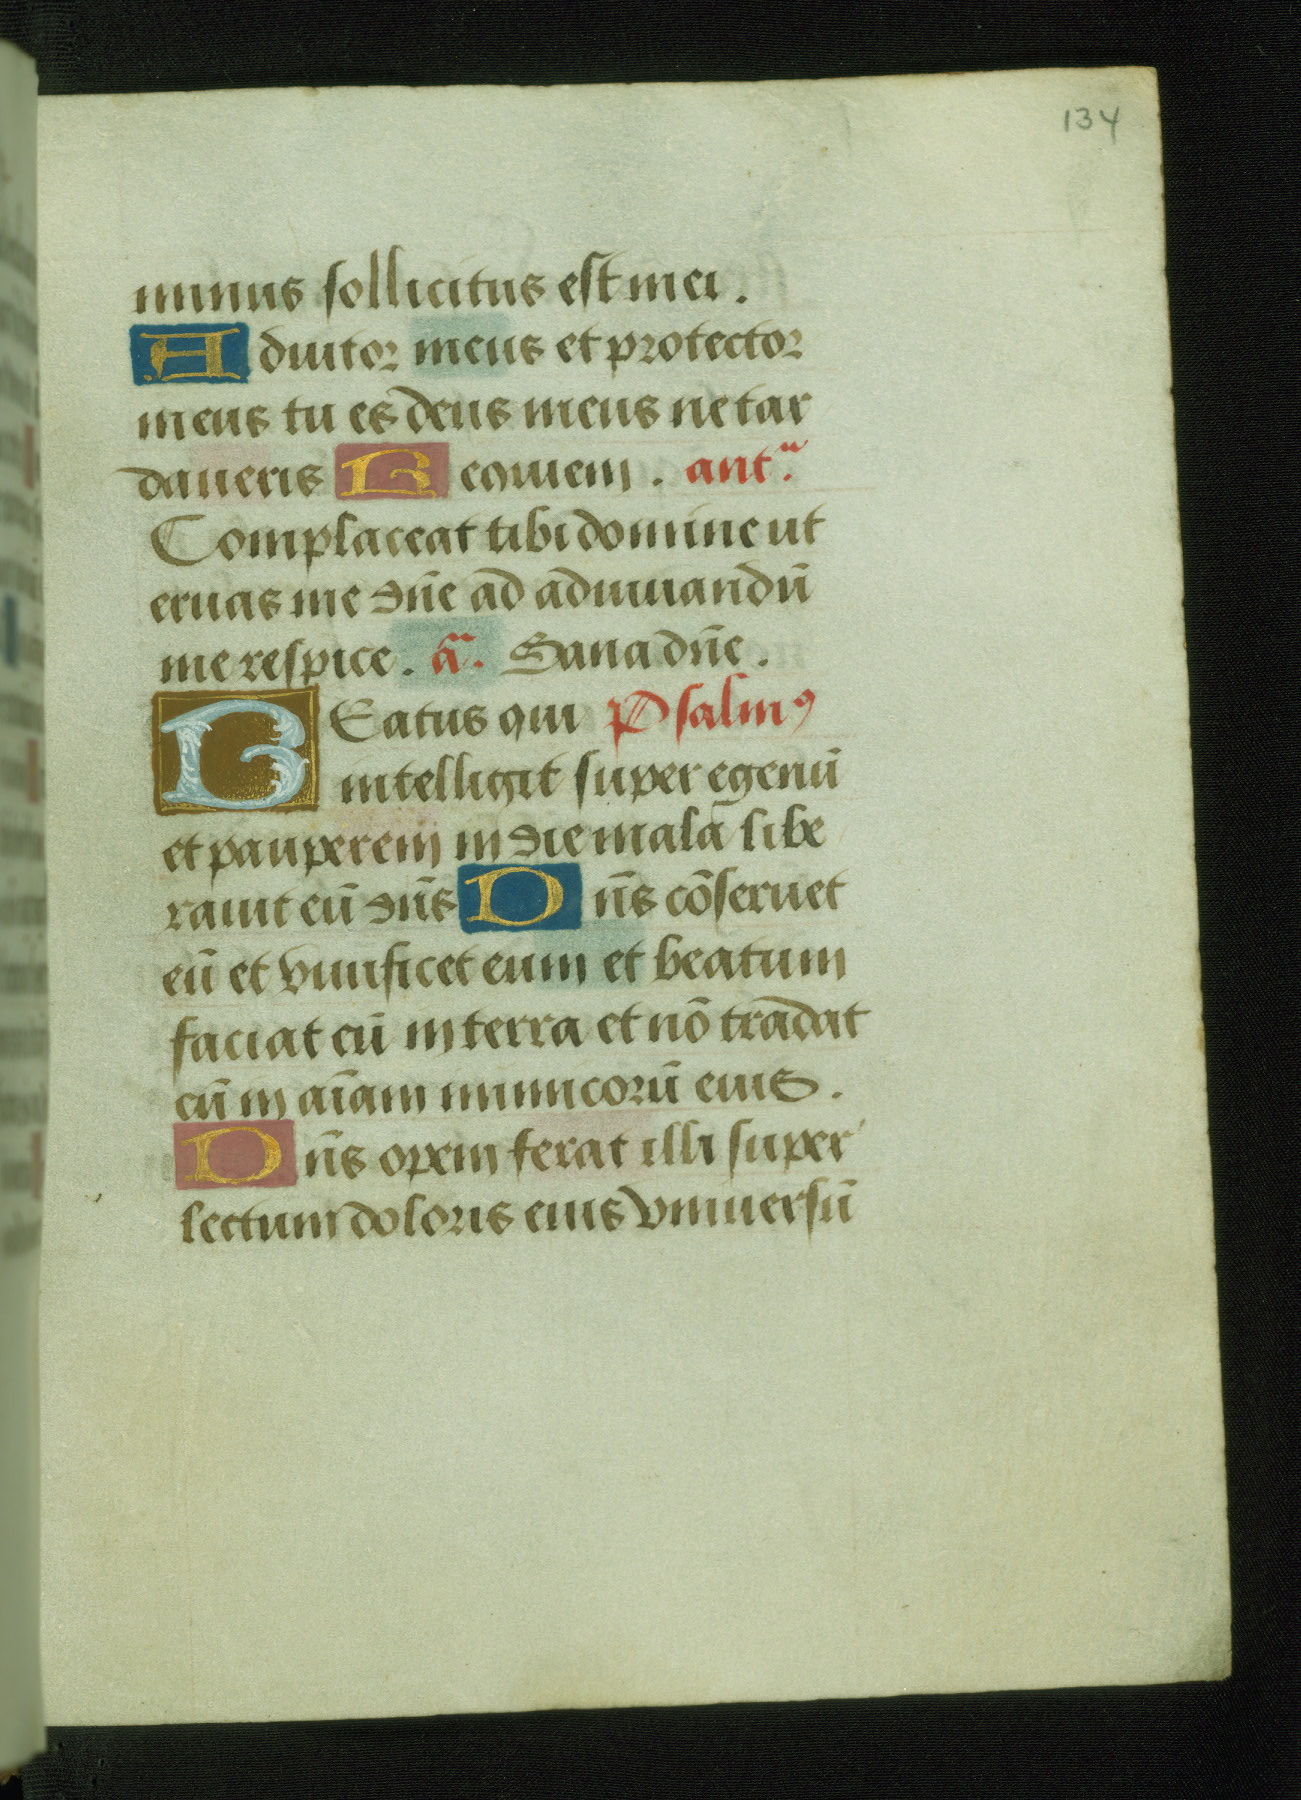 134
minus sollicitus est mei.
Adiutor meus et protector
meus tu es deus meus ne tar
daueris Requiem. antᵃ.
Complaceat tibi domine ut
eruas me dn̄e ad adiuuandū
me respice. ā. Sana dn̄e.
BEatus qui Psalmꝰ
intelligit super egenū
et pauperem in die mala libe
rauit eū dn̄s Dn̄s cōseruet
eū et viuificet eum et beatum
faciat eū in terra et nō tradat
eū in aīam inimicorū eius.
Dn̄s opem ferat illi super
lectum doloris eius vniuersū